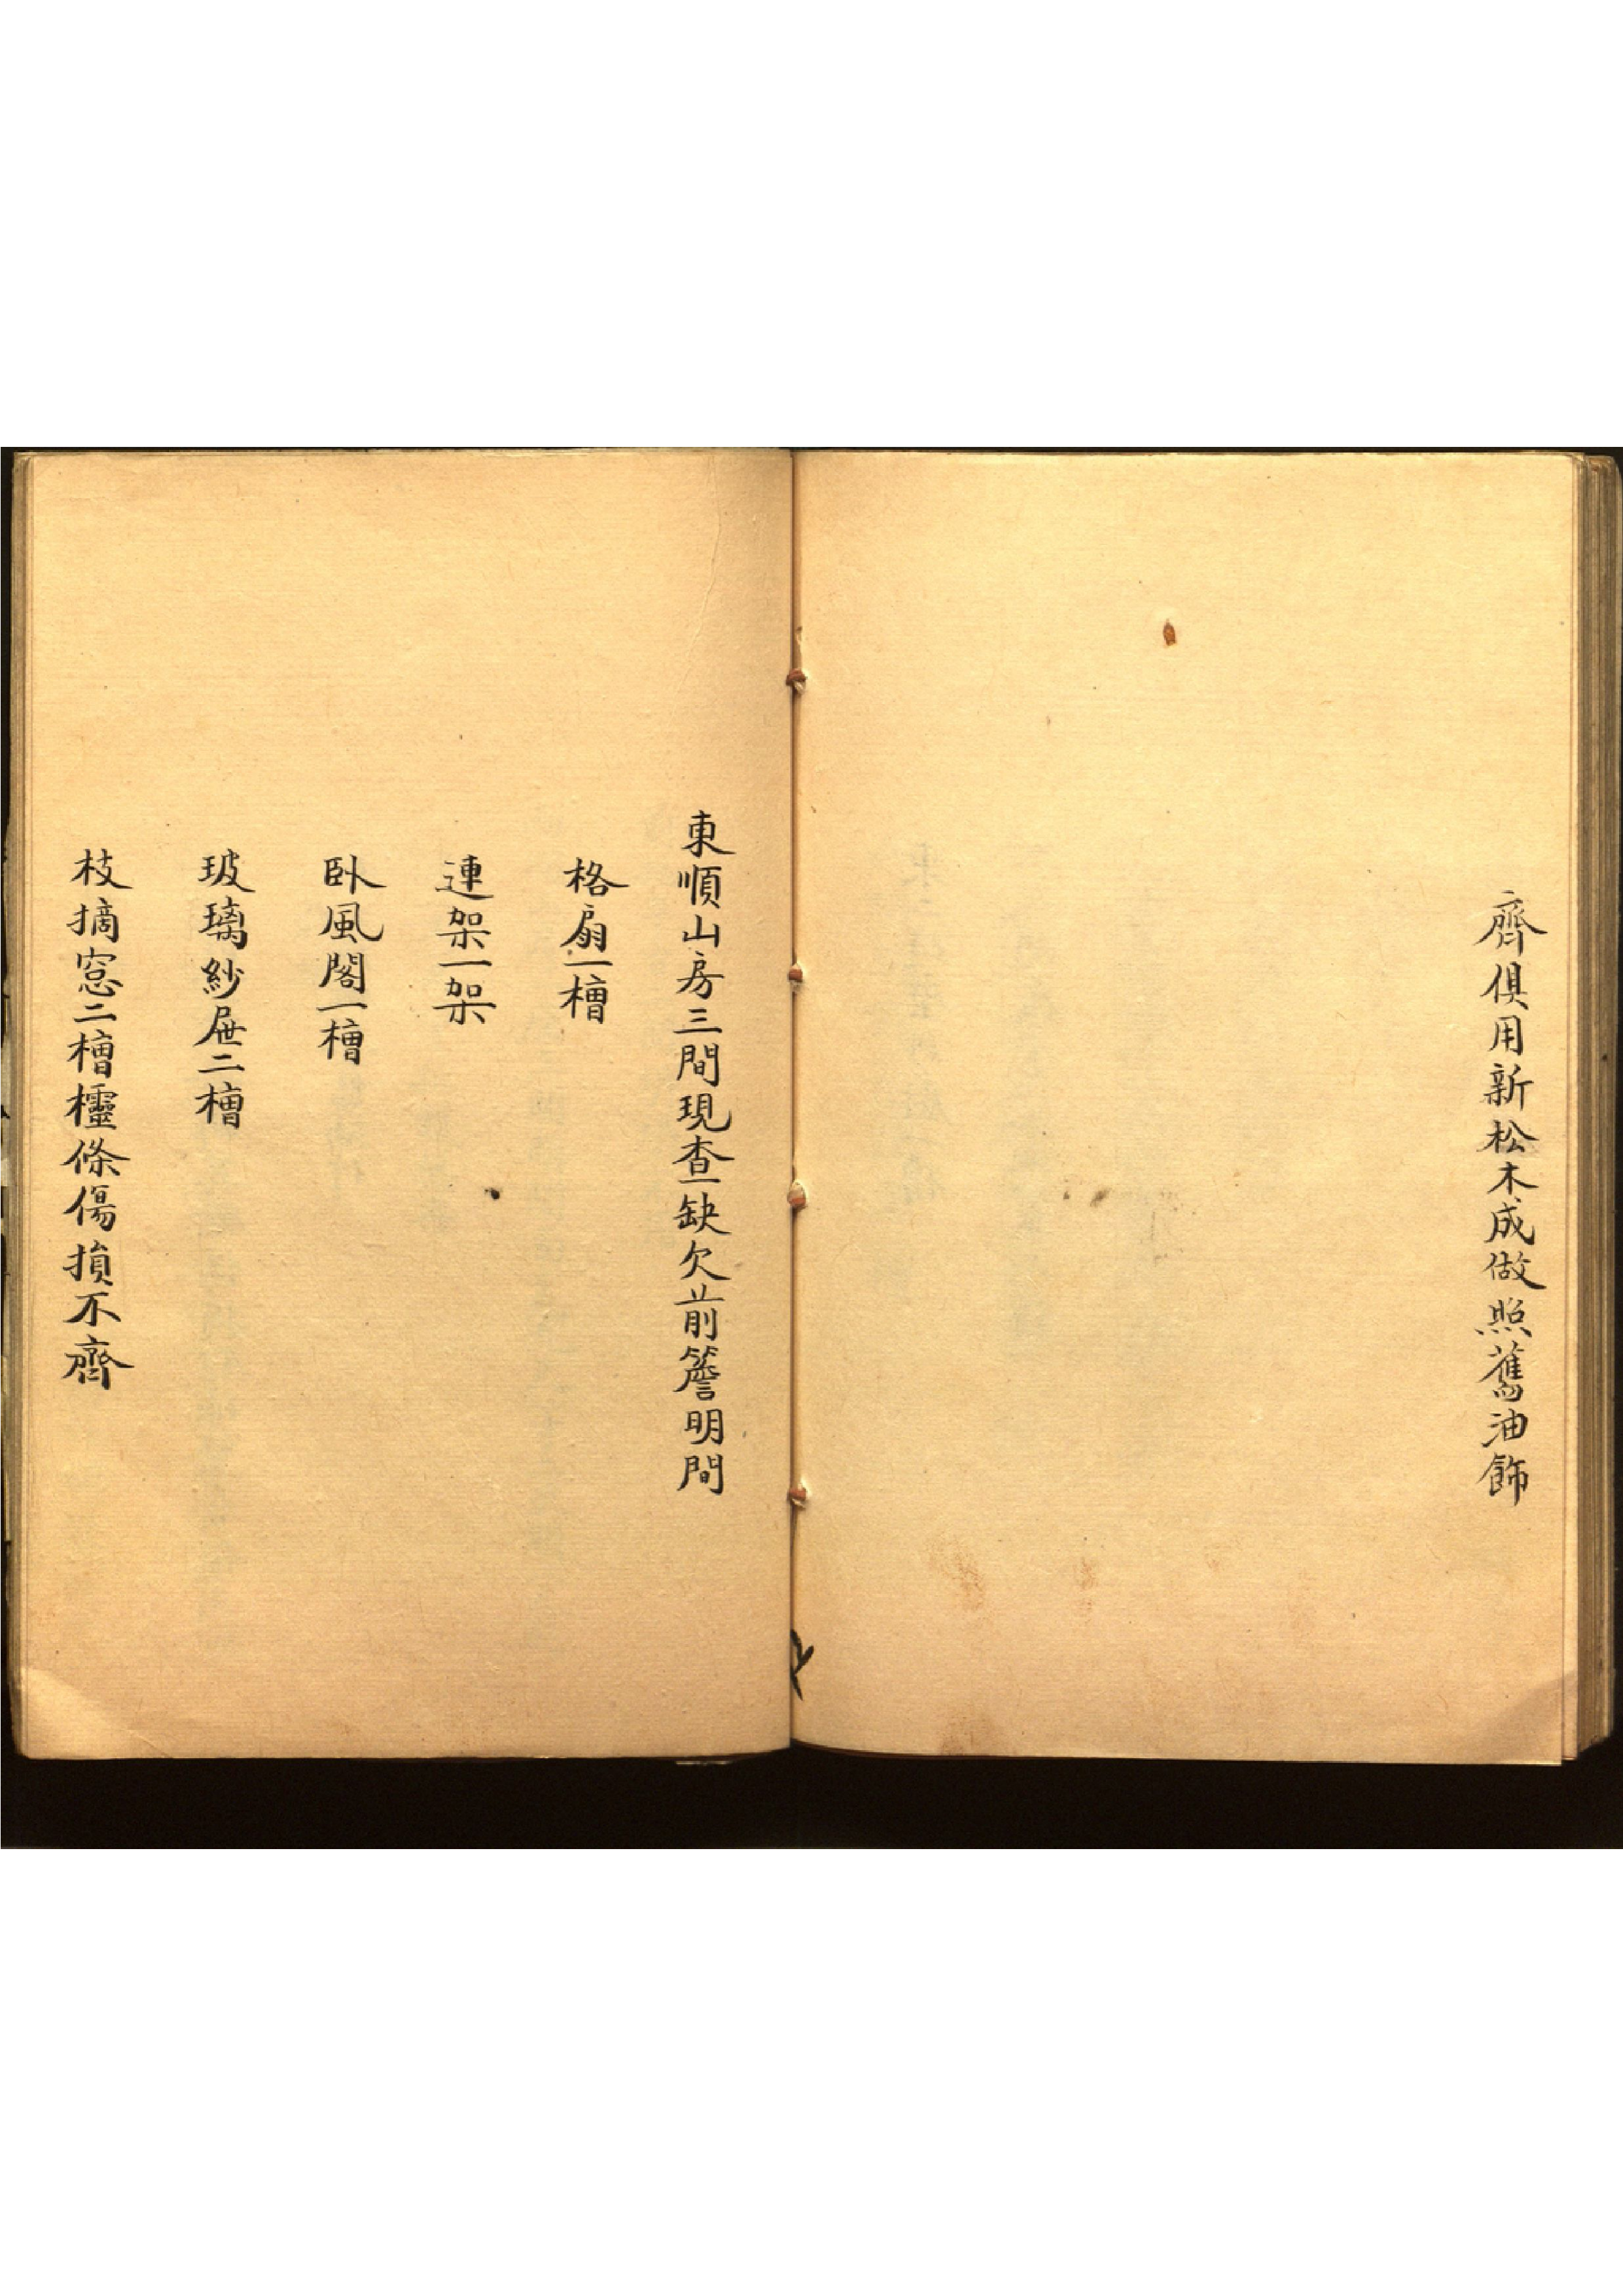 齊俱用新松木成做照舊油飾
東順山房三間現查缺欠前簷明間
格扇一槽
連架一架
臥風閣一槽
玻璃紗屉二槽
枝摘窓二槽櫺條傷損不齊